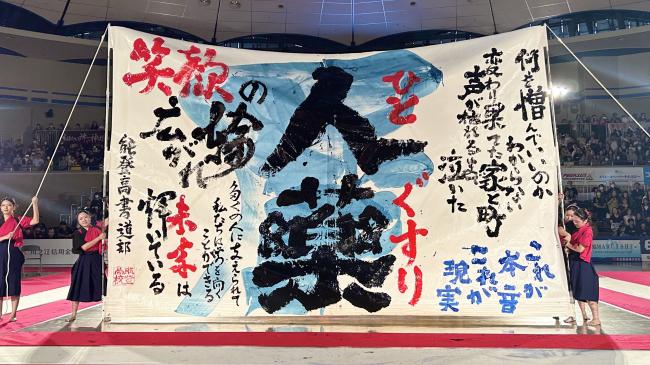 何を憎んでいいのか
わからない
変わり果てた家と町
声が枯れるまで泣いた
これが
本音
これが
現実
ひとぐすり
人薬
多くの人に支えられて
私たちは前を向く
ことができる
笑顔の
輪
広がれ
未来は
輝いている
能登高書道部